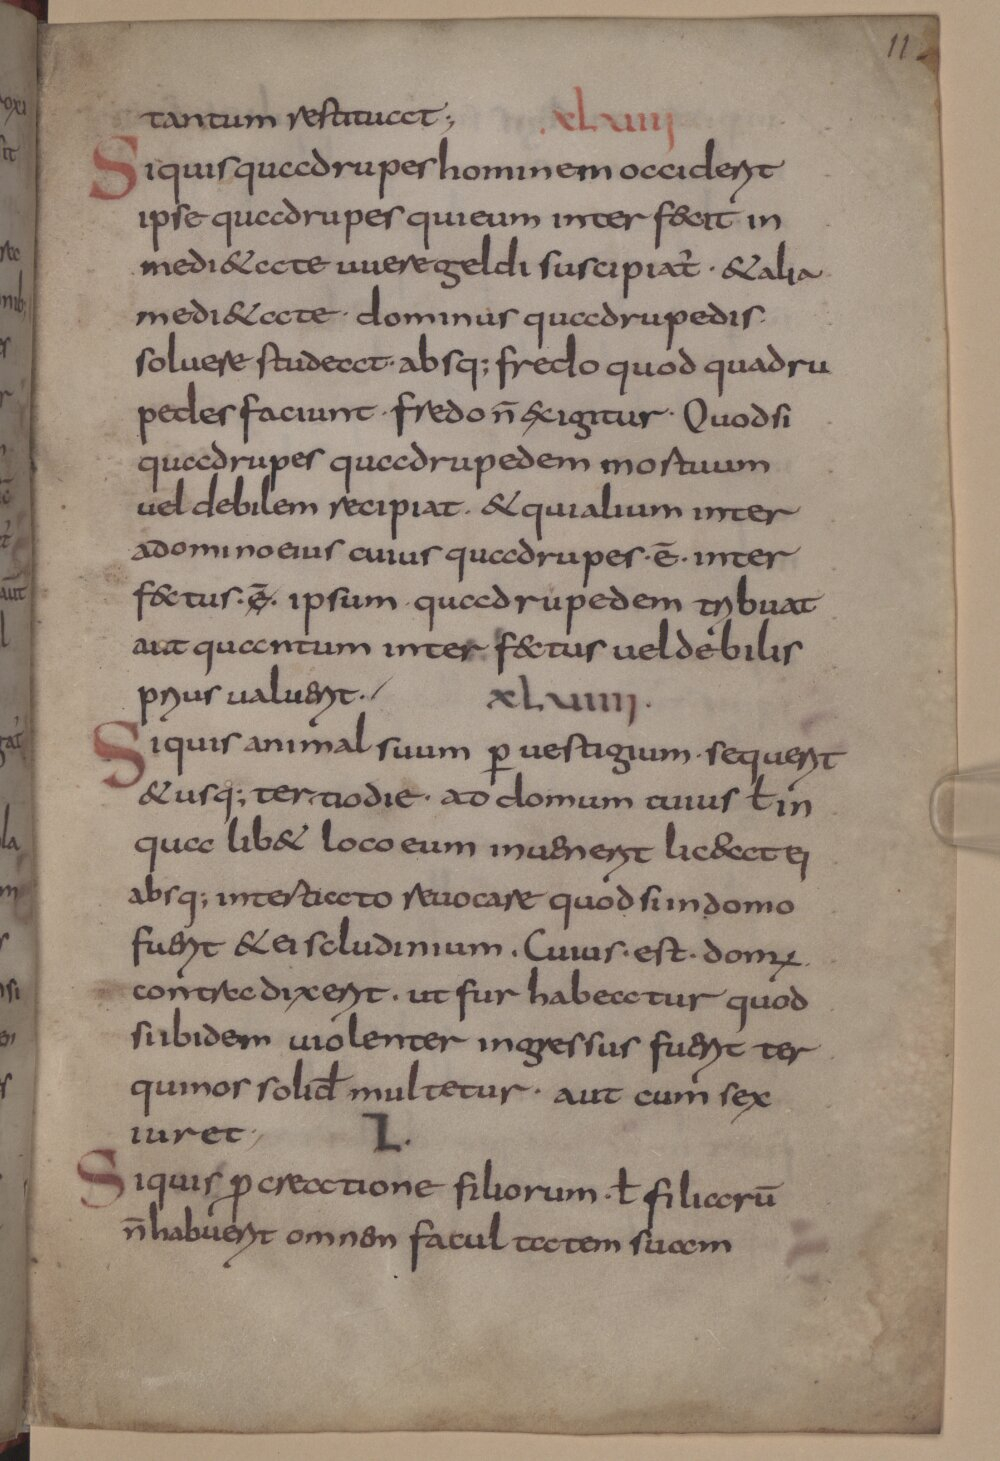 11
tantum restituat; .xLviii
Siquis quadrupes hominem occiderit
ipse quadrupes qui eum inter fecit in
medi&ate uueregeldi suscipiat̉ · & alia
medi&ate · dominus quadrupedis·
soluere studeat · absq; fredo quod quadru
pedes faciunt · fredo n̄ exigitur · Quodsi
quadrupes quadrupedem mortuum
uel debilem recipiat · & qui alium inter
a domino eius cuius quadrupes · ē · inter
f&ctus · ē · ipsum quadrupedem tribuat
aut quantum inter f&ctus uel debilis
prius ualuerit · xLviiii ·
Siquis animal suum ꝑ uestigium · sequerit
& usq; tertio die · ad domum cuius ł in
qua lib& loco eum inuenerit lic&at ei
absq; intertiato reuocare quod si in domo
fuerit & ei scludinium · Cuius · est · domꝰ
contradixerit · ut fur habeatur quod
si ibidem uiolenter ingressus fuerit ter
quinos solid̄ multetur · aut cum sex
iuret L ·
Siquis ꝓcreatione filiorum · ł filiarū
n̄ habuerit omnen facultatem suam